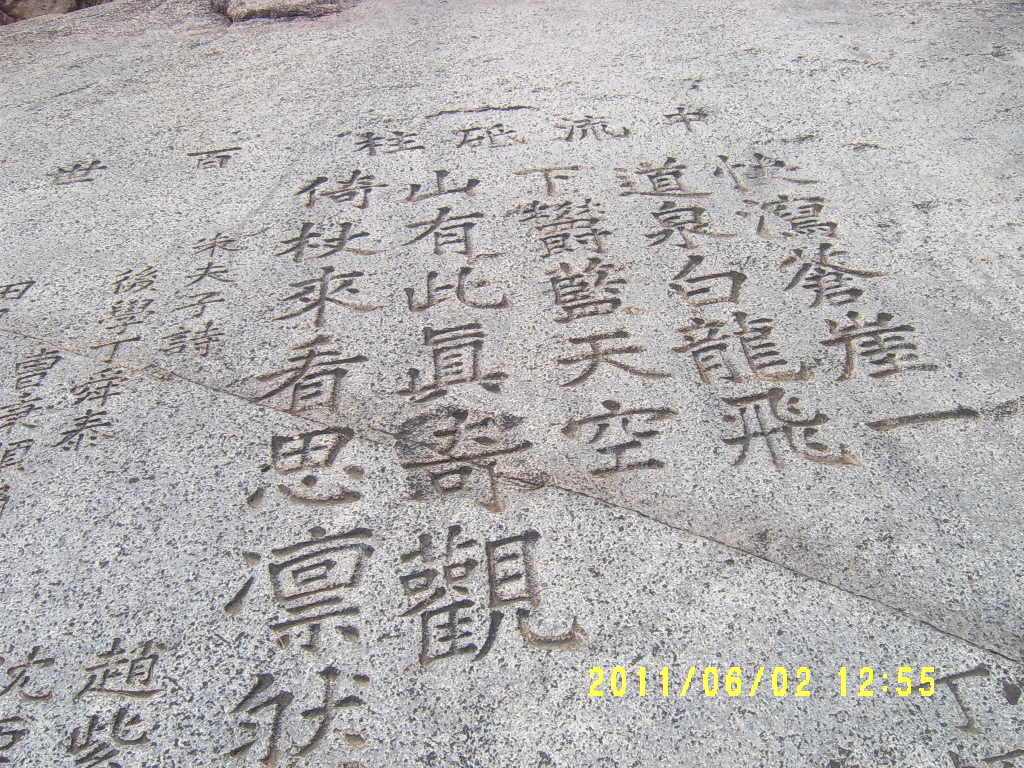 中流砥柱
百世
快瀉蒼崖一
道泉白龍飛
下鬱藍天空
山有此眞奇觀
倚杖來看思凜然
朱夫子詩
後學丁舜泰
趙
沈
田
丁
2011/06/02 12:55